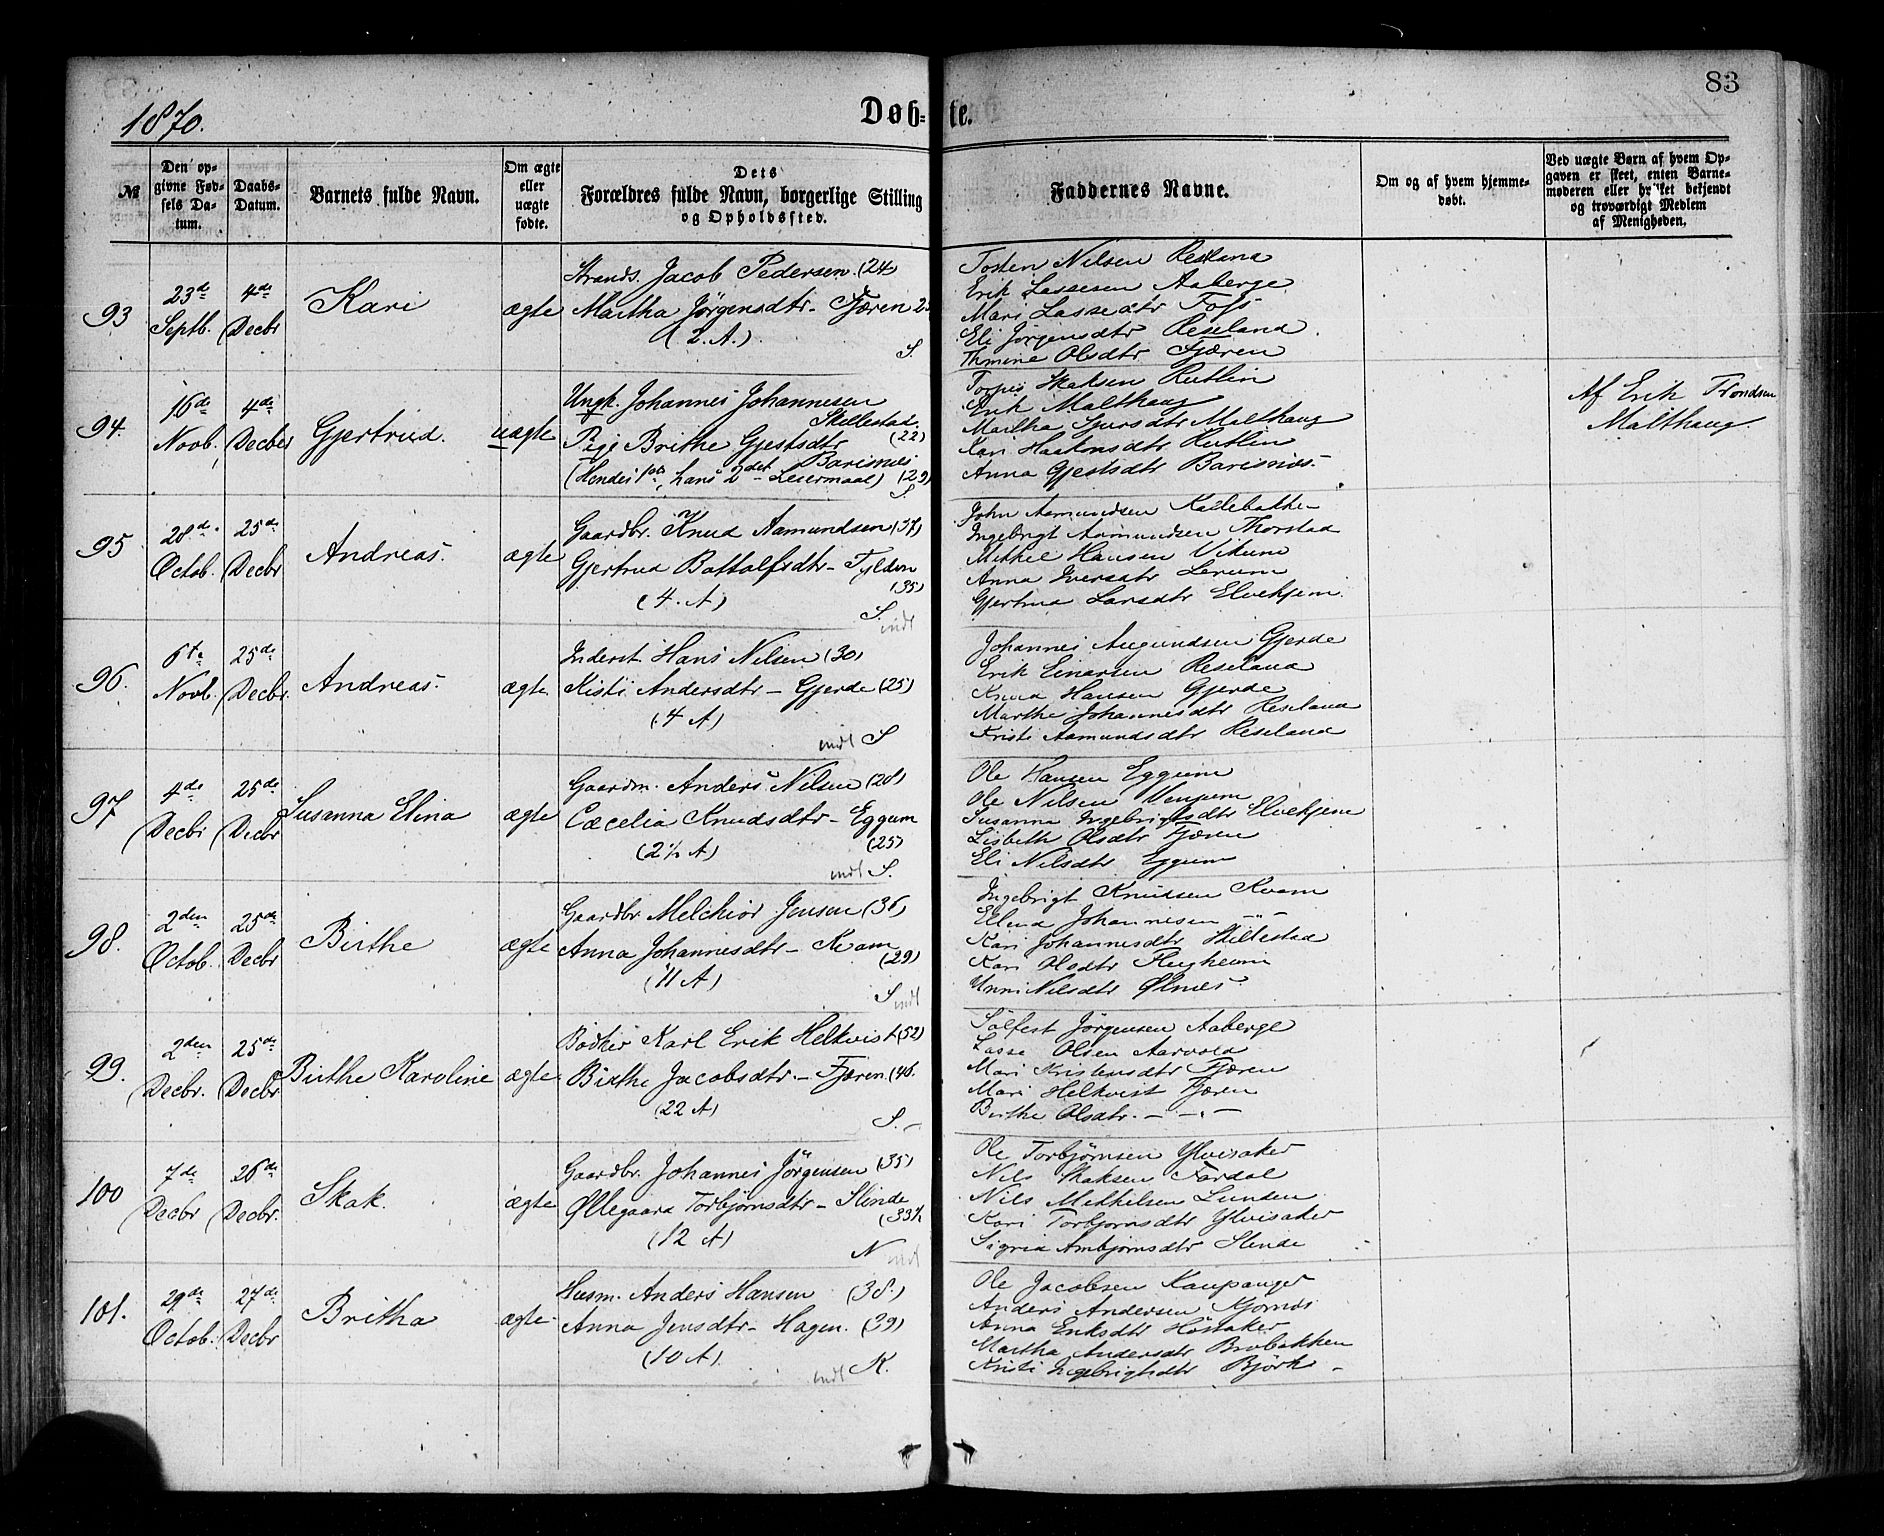 83
1870.
Døb- te.
№
Den op-
givne Fød-
sels Da-
tum.
Daabs-
Datum.
Barnets fulde Navn.
Om ægte
eller
uægte
fødte.
Dets
Forældres fulde Navn, borgerlige Stilling
og Opholdssted.
Faddernes Navne.
Om og af hvem hjemme-
døbt.
Ved uægte Børn af hvem Op-
gaven er skeet, enten Barne-
moderen eller hvilket bekjendt
og troværdigt Medlem
af Menigheden.
93
23de
Septb.
4de
Decbr
Kari
ægte
Strands. Jacob Pedersen (24)
Martha Jörgensdtr - Fjæren
(2. A.)
S.
Tosten Nilsen Reseland
Erik Lassesen Aaberge
Mari Lassedtr Fofs
Eli Jörgensdtr Reseland
Olsdtr Fjæren
94.
16de
Novb.
4de
Decber
Gjertrud.
uægte
Ungk. Johannes Johannesen
Skellestad.
(22)
Pige Brithe Gjestsdtr
Barisnes
(Hendes 1ste, hans 2det Leiermaal) (29)
S.
Skaksen Rutlin
Erik Malthaug
Martha Sjursdtr Malthaug
Kari Haakonsdtr Rutlin
Anna Gjestsdtr Barisnes.
Af Erik Trondsen
Malthaug
95
28de
Octob.
25de
Decbr
Andreas.
ægte
Gaardbr. Knud Aamundsen (37)
Gjertrud Bottolfsdtr - Fylden
(35)
(4. A)
S.
indt
John Aamundsen Kallebakke
Ingebrigt Aamundsen Thorstad
Mikkel Hansen Vikum
Anna Iversdtr Lerum
Gjertrud Larsdtr Elvekjem.
96.
6te
Novb.
25de
Decbr.
Andreas.
ægte
Inderst. Hans Nilsen (30)
Kisti Andersdtr - Gjerde (25)
(4 A)
indt S
Johannes Augundsen Gjerde
Erik Einarsen Reseland
Knud Hansen Gjerde
Marthe Johannesdtr Reseland
Kristi Aamundsdtr Reseland
97
4de
Decbr
25de
Decbr
Susanna Elina
ægte
Gaardm. Anders Nilsen (28)
Cæcelia Knudsdtr - Eggum
(25)
(2½ A)
indt S.
Ole Hansen Eggum
Ole Nilsen Venjum
Susanna Ingebrigtsdtr Elvekjem
Lisbeth Olsdtr Fjæren
Eli Nilsdtr Eggum
98.
2den
Octob.
25de
Decbr
Birthe
ægte
Gaardbr Melchior Jensen (36)
Anna Johannesdtr - Kvam
(29)
(11 A)
S. indt
Ingebrigt Knudsen Kvam
Johannesen -"-
Kari Johannesdtr Skillestad
Kari Olsdtr Flugheim
Unni Nilsdtr Ølnes.
99.
2den
Decbr.
25de
Decbr
Birthe Karoline
ægte
Bödker Karl Erik Helkvist (52)
Birthe Jacobsdtr. - Fjæren (46.
(22 A)
S. -
Sölfest Jörgensen Aaberge
Lasse Olsen Aarvold
Mari Kristensdtr Fjæren
Mari Helkvist Fjæren
Birthe Olsdtr. - -"-
100
7de
Decbr
26de
Decbr.
Skak.
ægte
Gaardbr. Johannes Jörgensen (35)
Øllegaard Torbjörnsdtr - Slinde
(33½
(12 A)
N indt
Ole Torbjørnsen Ylvisaker
Nils Skaksen Fardal
Nils Mikkelsen Lunden
Kari Torbjørnsdtr Ylvisaker
Sigrid Ambjørnsdtr Slinde
101.
29de
Octob.
27de
Decbr
Britha
ægte
Husm. Anders Hansen (38.)
Anna Jensdtr - Hagen. (39)
(10 A)
indt K.
Ole Jacobsen Kaupanger
Anders Andersen Kjornes
Anna Eriksdtr Höisaker
Martha Andersdtr Brobakken
Kristi Ingebrigtsdtr Björk -